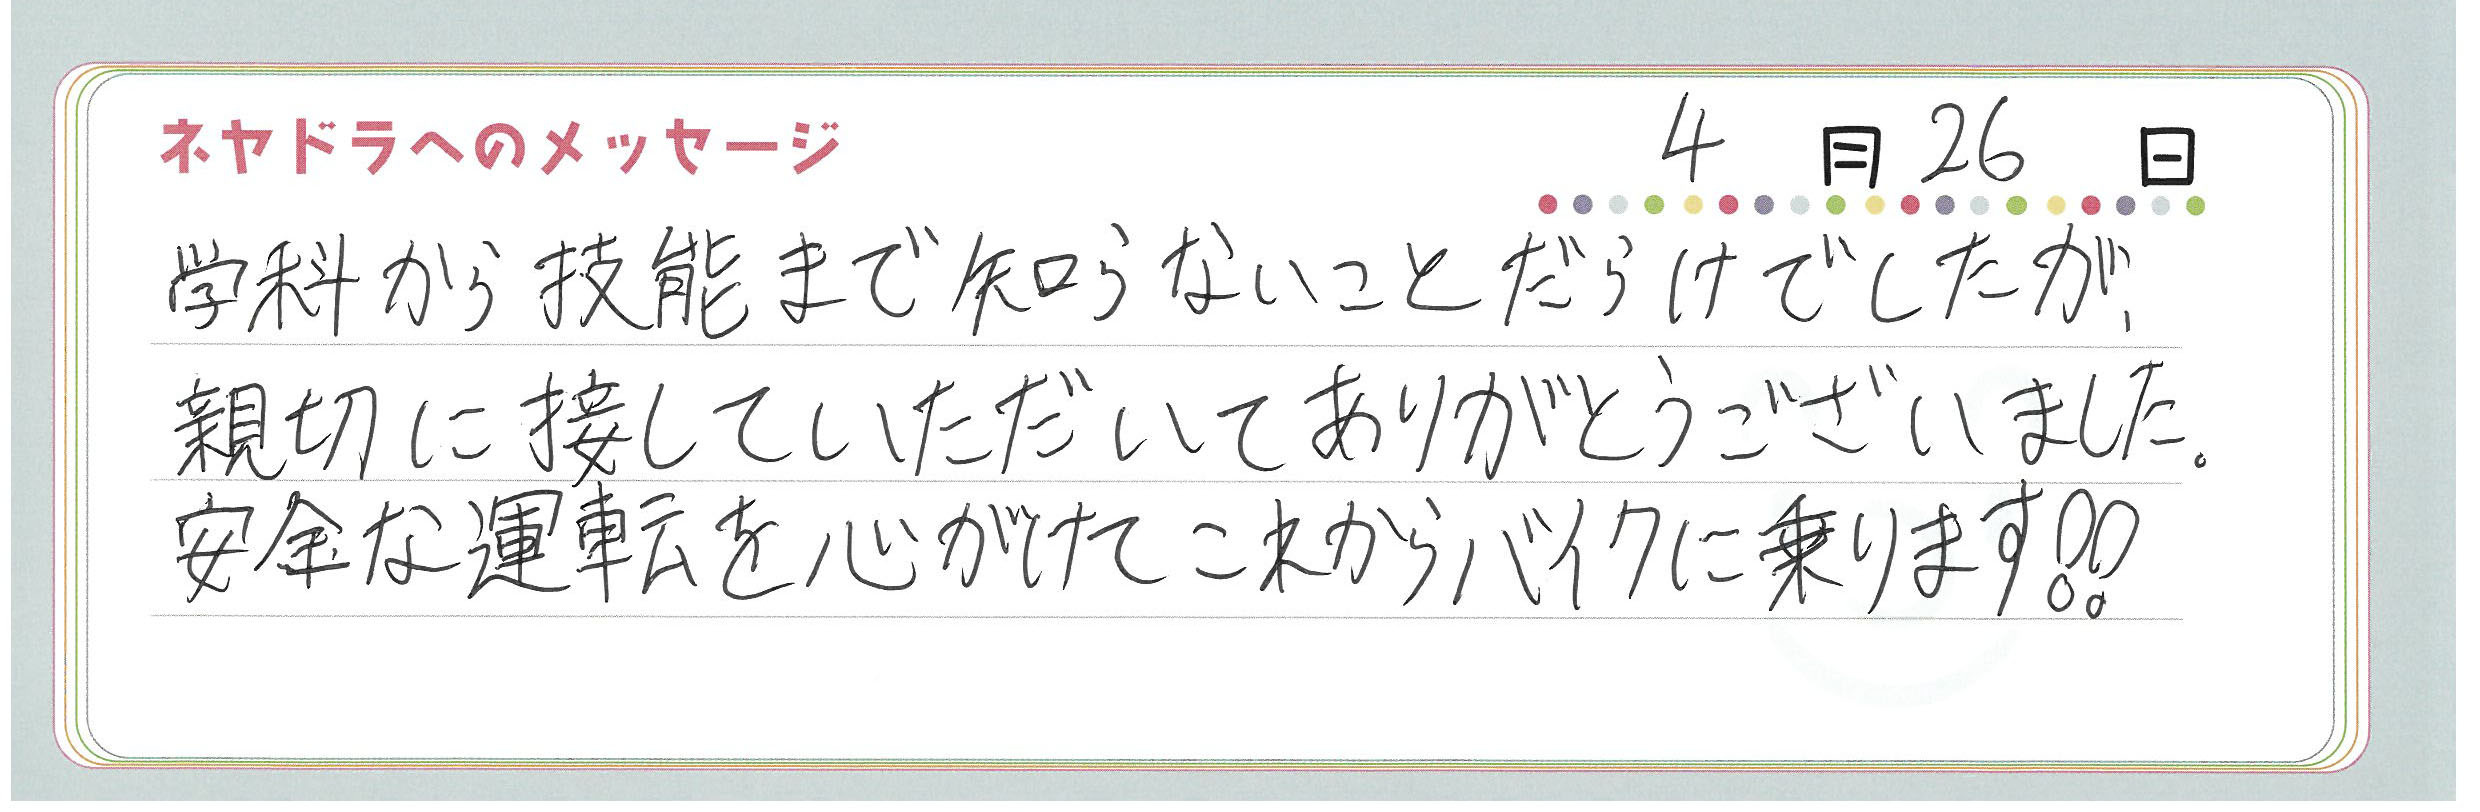 ネヤドラへのメッセージ 4月26日
学科から技能まで知らないことだらけでしたが、
親切に接していただいてありがとうございました。
安全な運転を心がけてこれからバイクに乗ります!!